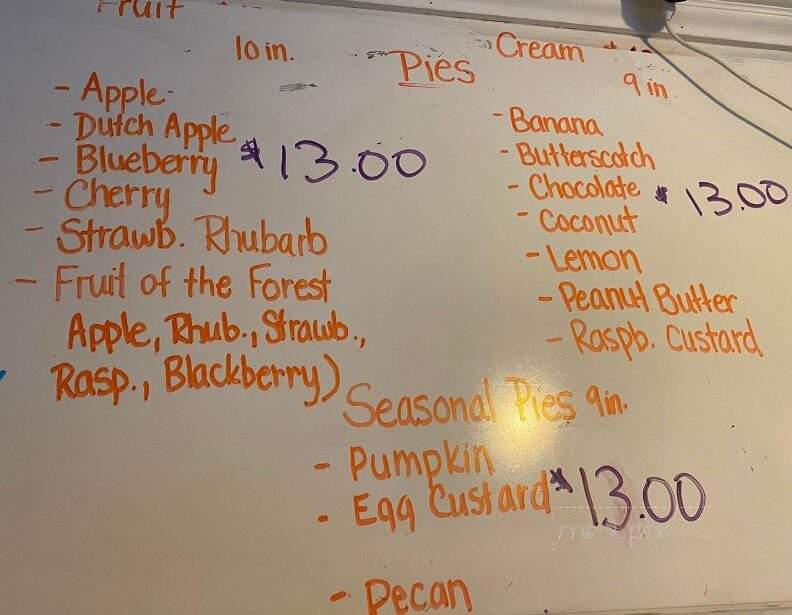 Fruit
10 in.
Pies
Cream
9 in
- Apple
- Dutch Apple
- Blueberry
$13.00
- Cherry
- Strawb. Rhubarb
- Fruit of the Forest
Apple, Rhub., Strawb.,
Rasp., Blackberry)
- Banana
- Butterscotch
- Chocolate
$13.00
- Coconut
- Lemon
- Peanut Butter
- Raspb. Custard
Seasonal Pies 9in.
- Pumpkin
- Egg Custard
$13.00
- Pecan
menupix